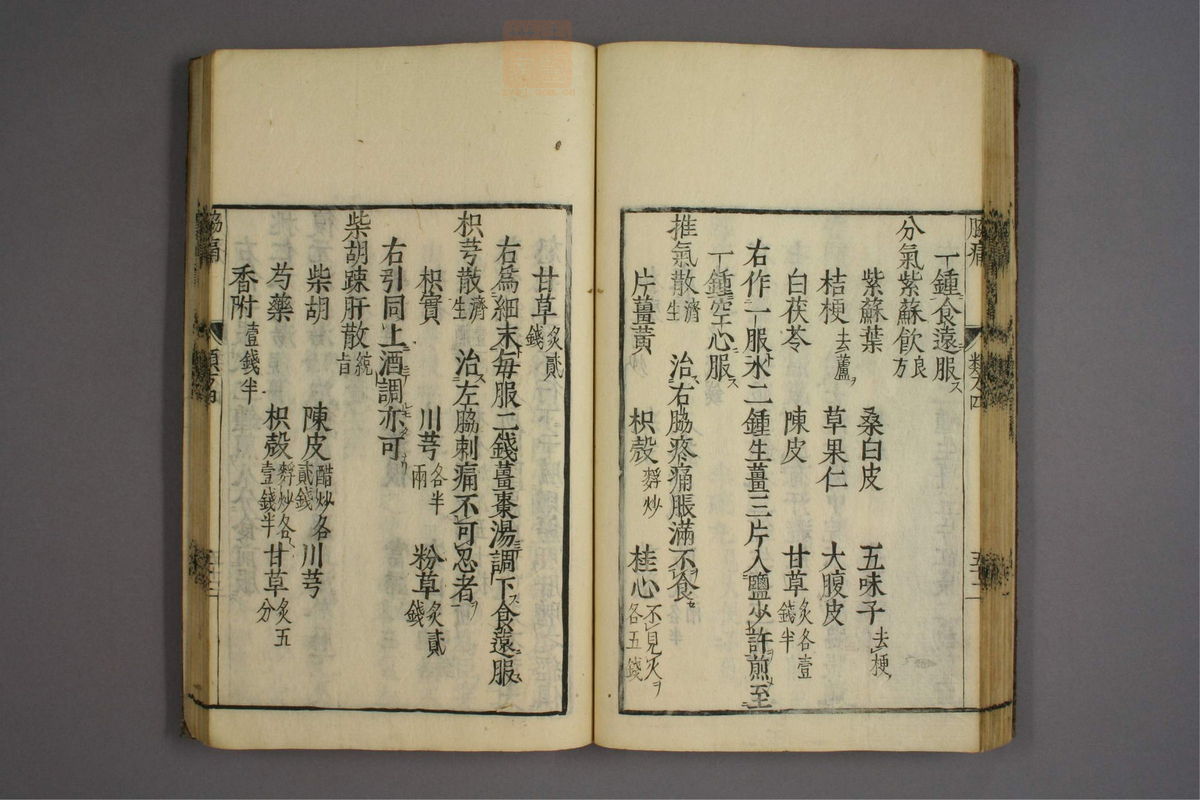 脇痛
類公四
五十二
一鍾食遠服ス
分氣紫蘇飲 良方
紫蘇葉 桑白皮 五味子 去梗
桔梗 去蘆ヲ 草果仁 大腹皮
白茯苓 陳皮 甘草 炙各壹錢半
右作一服水二鍾生薑三片入鹽少許煎至
一鍾空心服ス
推氣散 濟生 治右脇疼痛脹滿不食
片薑黃 枳殼 麩炒 桂心 不見火ヲ各五錢
甘草 炙貳錢
右爲細末毎服二錢薑棗湯調下食遠服
枳芎散 濟生 治左脇刺痛不可忍者
枳實 川芎 各半兩 粉草 炙貳錢
右引同上酒調亦可
柴胡踈肝散 統旨
柴胡 陳皮 醋炒各貳錢 川芎
芍藥 枳殼 麩炒各壹錢半 甘草 炙五分
香附 壹錢半
脇痛